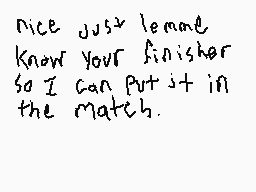 nice just lemme
know your finisher
so I can put it in
the match.